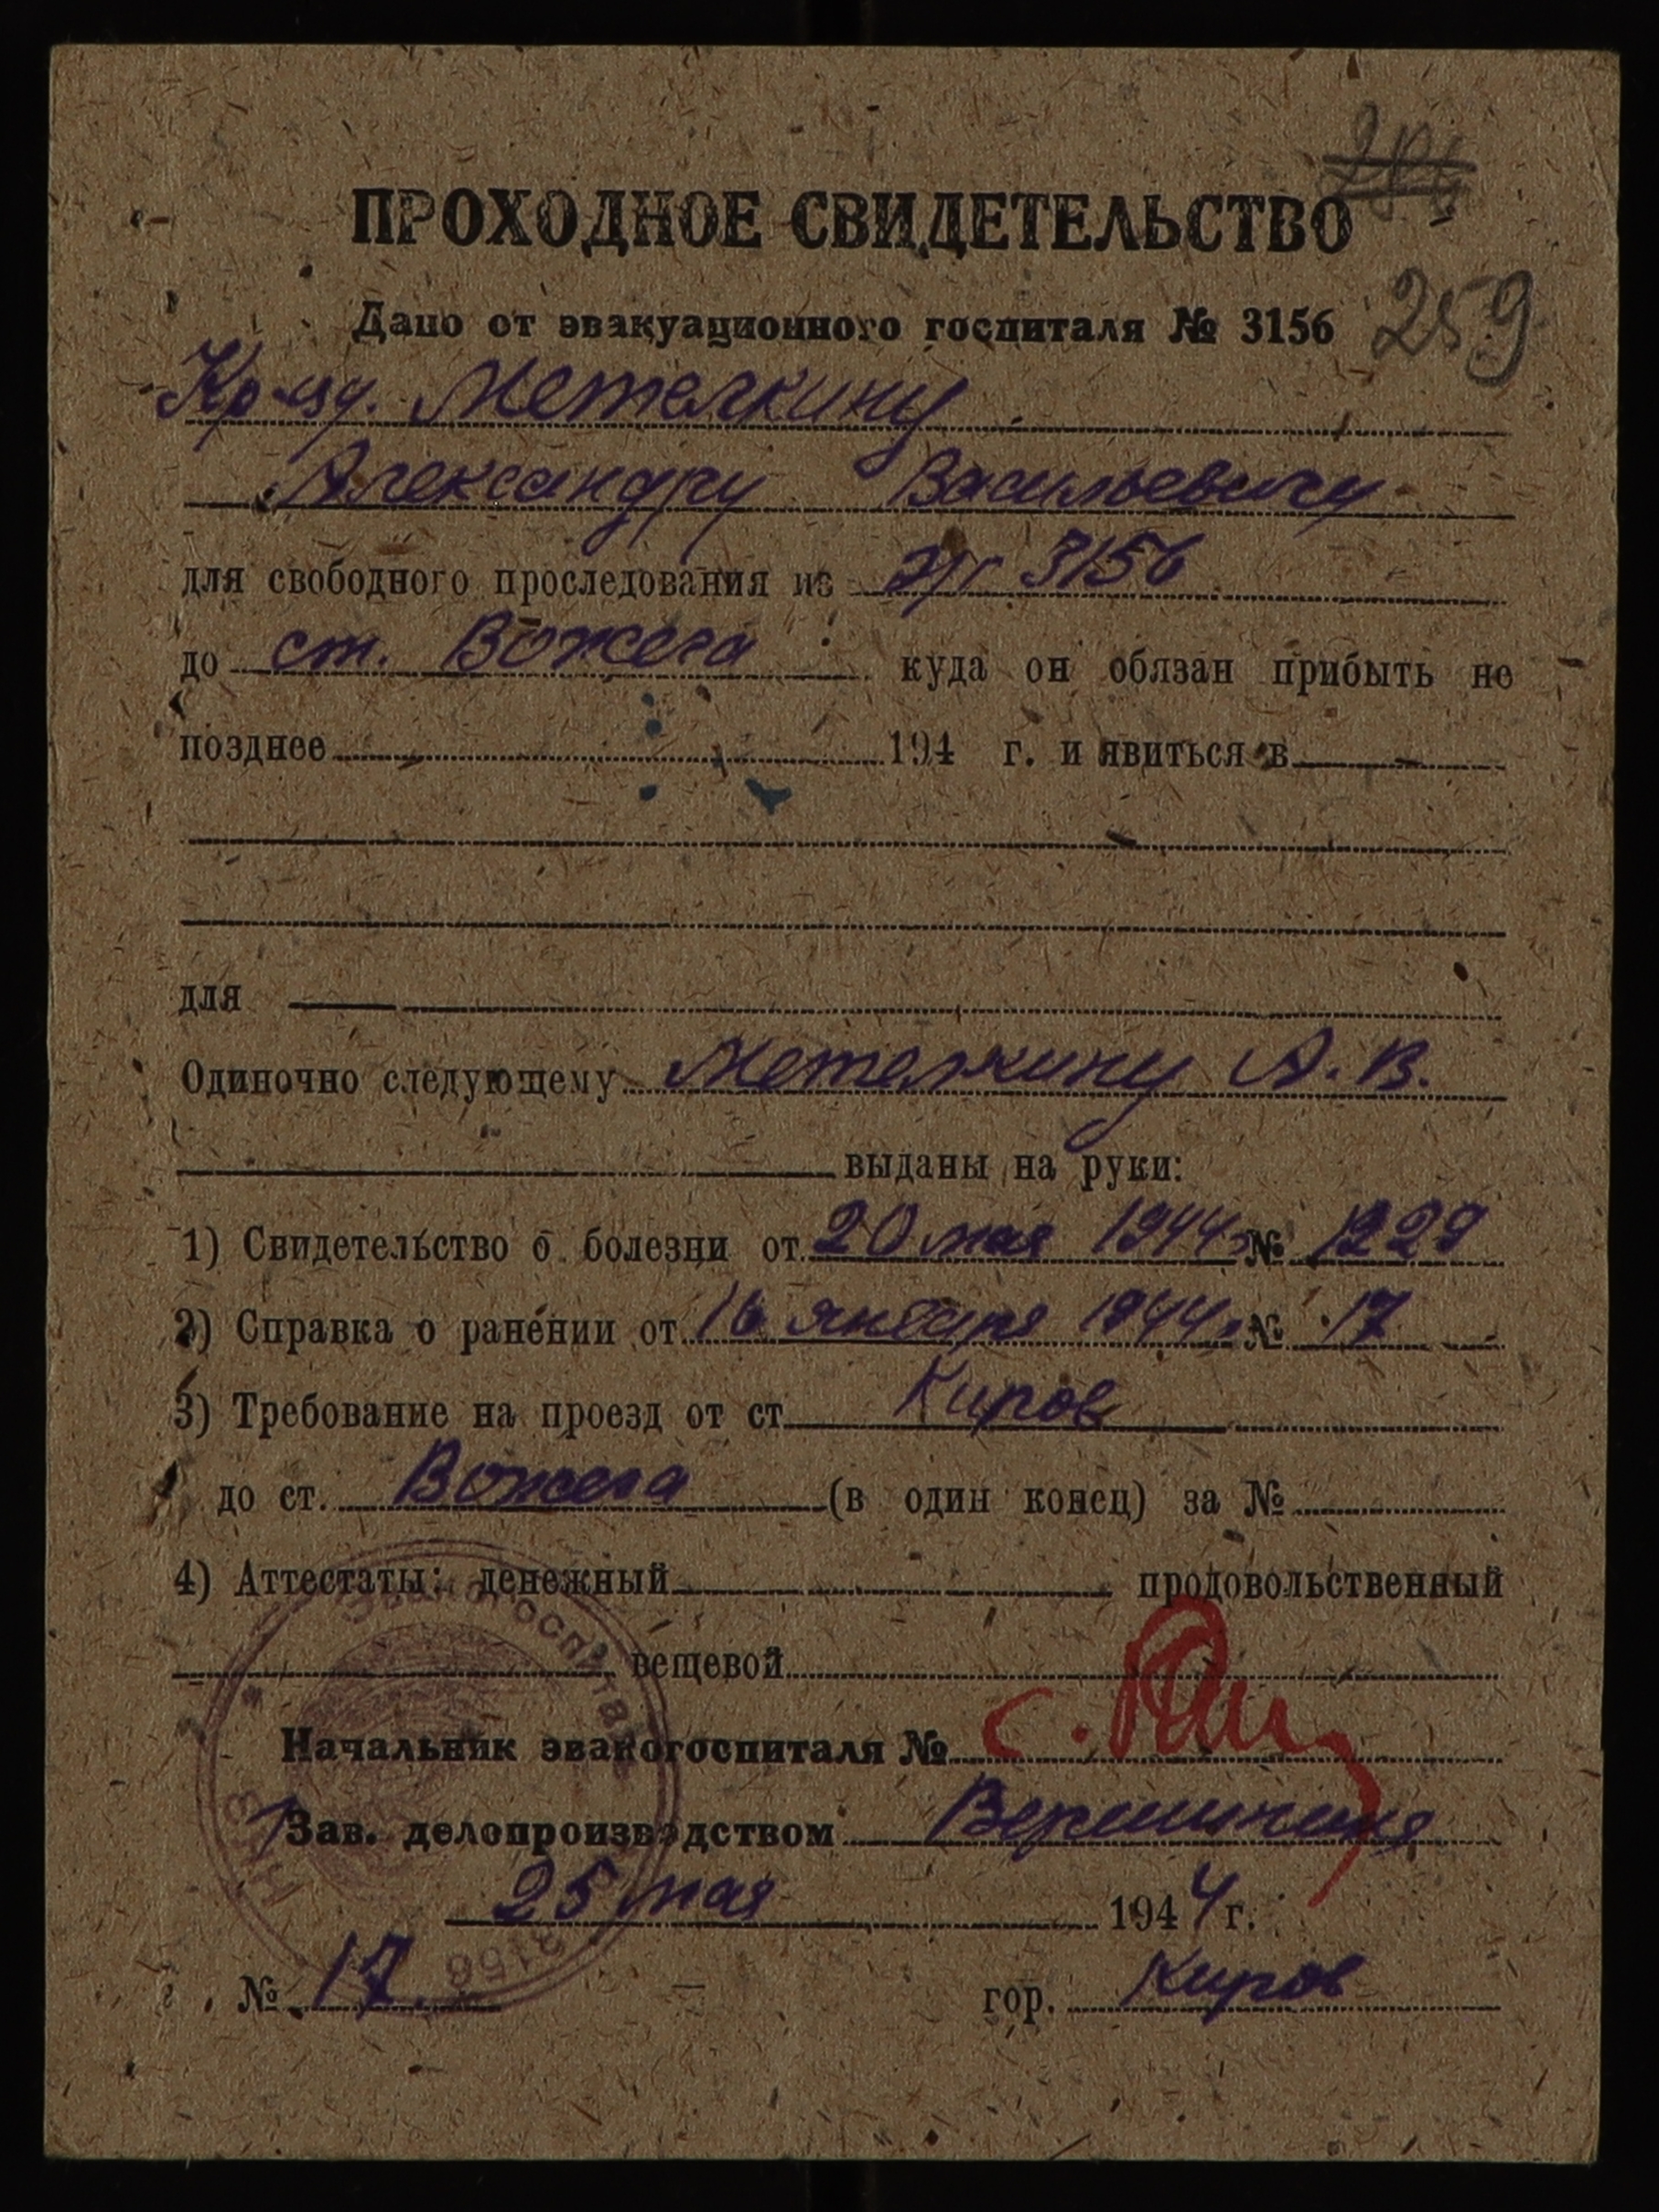 ПРОХОДНОЕ СВИДЕТЕЛЬСТВО
Дано от эвакуационного госпиталя № 3156
259
Кр-цу. Метелкину
Александру Васильевичу
для свободного проследования из э/г 3156
до ст. Вожега куда он обязан прибыть не
позднее 194 г. и явиться в
для
Одиночно следующему Метелкину А. В.
выданы на руки:
1) Свидетельство о болезни от 20 мая 1944 № 1229
2) Справка о ранении от 16 января 1944г. № 17
3) Требование на проезд от ст. Киров
до ст. Вожега (в один конец) за №
4) Аттестаты: денежный продовольственный
вещевой
Начальник эвакогоспиталя №
Зав. делопроизводством
25 мая 1944 г.
№ 17. гор. Киров
Эвакогоспиталь
3156